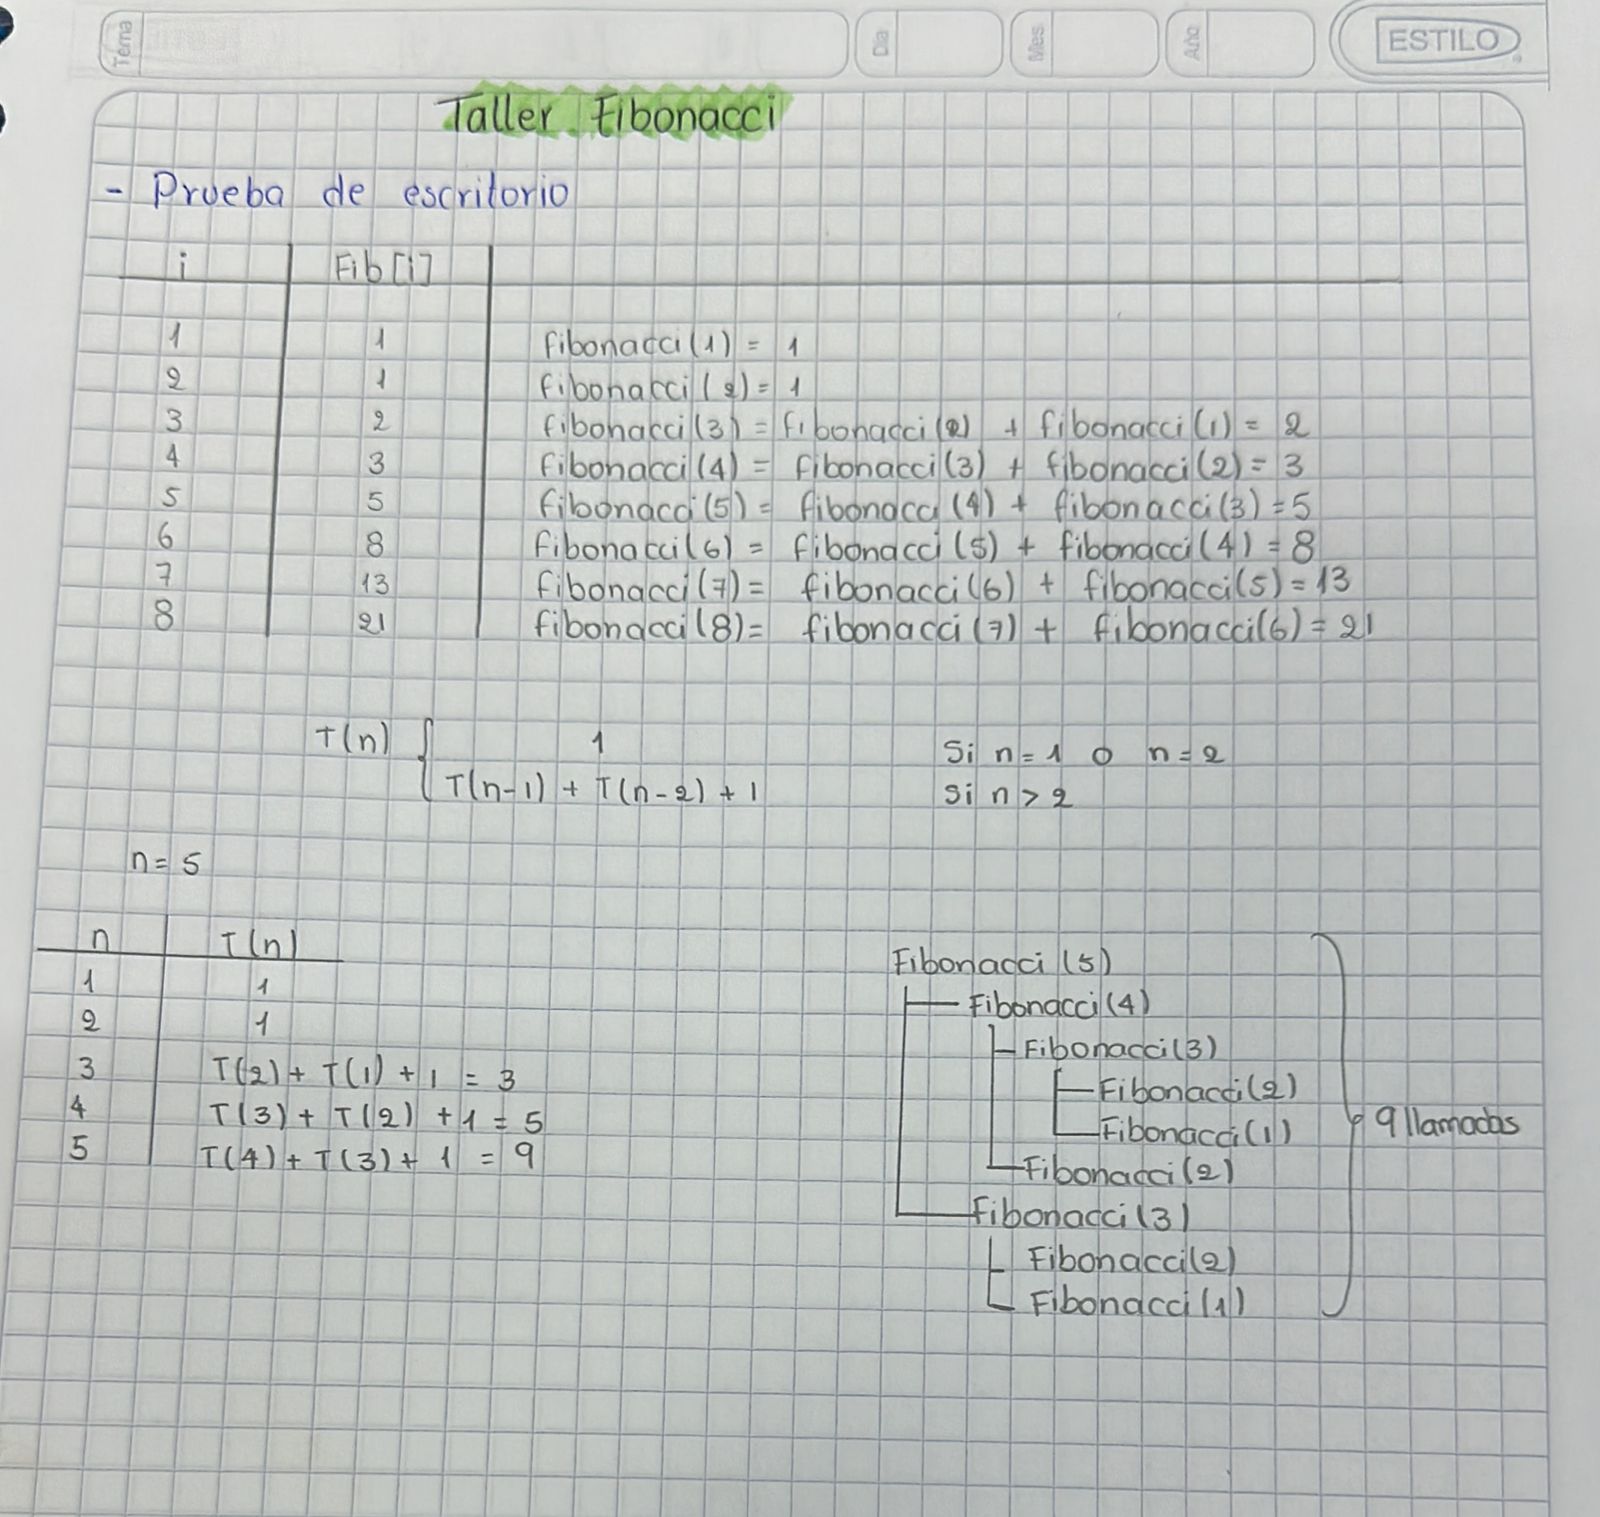 Tema Dia Mes Año ESTILO
Taller Fibonacci
- Prueba de escritorio
i Fib[i]
1 1 fibonacci(1) = 1
2 1 fibonacci(2) = 1
3 2 fibonacci(3) = fibonacci(2) + fibonacci(1) = 2
4 3 fibonacci(4) = fibonacci(3) + fibonacci(2) = 3
5 5 fibonacci(5) = fibonacci(4) + fibonacci(3) = 5
6 8 fibonacci(6) = fibonacci(5) + fibonacci(4) = 8
7 13 fibonacci(7) = fibonacci(6) + fibonacci(5) = 13
8 21 fibonacci(8) = fibonacci(7) + fibonacci(6) = 21
T(n) { 1 Si n = 1 o n = 2
T(n-1) + T(n-2) + 1 Si n > 2
n = 5
n T(n)
1 1
2 1
3 T(2) + T(1) + 1 = 3
4 T(3) + T(2) + 1 = 5
5 T(4) + T(3) + 1 = 9
Fibonacci(5)
Fibonacci(4)
Fibonacci(3)
Fibonacci(2)
Fibonacci(1)
Fibonacci(2)
Fibonacci(3)
Fibonacci(2)
Fibonacci(1)
9 llamadas